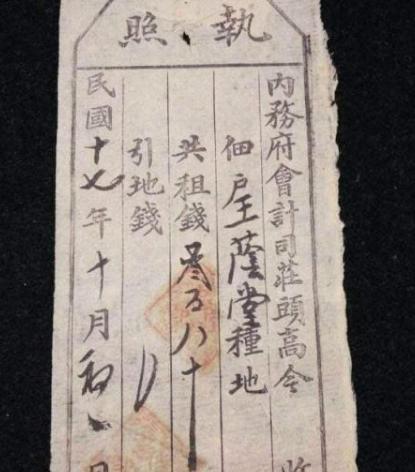 執照
內務府會計司莊頭高今
收
佃戶王蔭堂種地
共租錢叁百八十
引地錢
民國十七年十月初一日